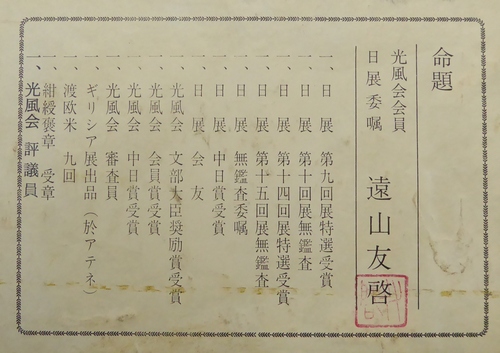 命題
光風会会員
日展委嘱
遠山友啓
一、日展 第九回展特選受賞
一、日展 第十回展無鑑査
一、日展 第十四回展特選受賞
一、日展 第十五回展無鑑査
一、日展 無鑑査委嘱
一、日展 中日賞受賞
一、日展 会友
一、光風会 文部大臣奨励賞受賞
一、光風会 会員賞受賞
一、光風会 中日賞受賞
一、光風会 審査員
一、ギリシア展出品（於アテネ）
一、渡欧米 九回
一、紺綬褒章 受章
一、光風会 評議員